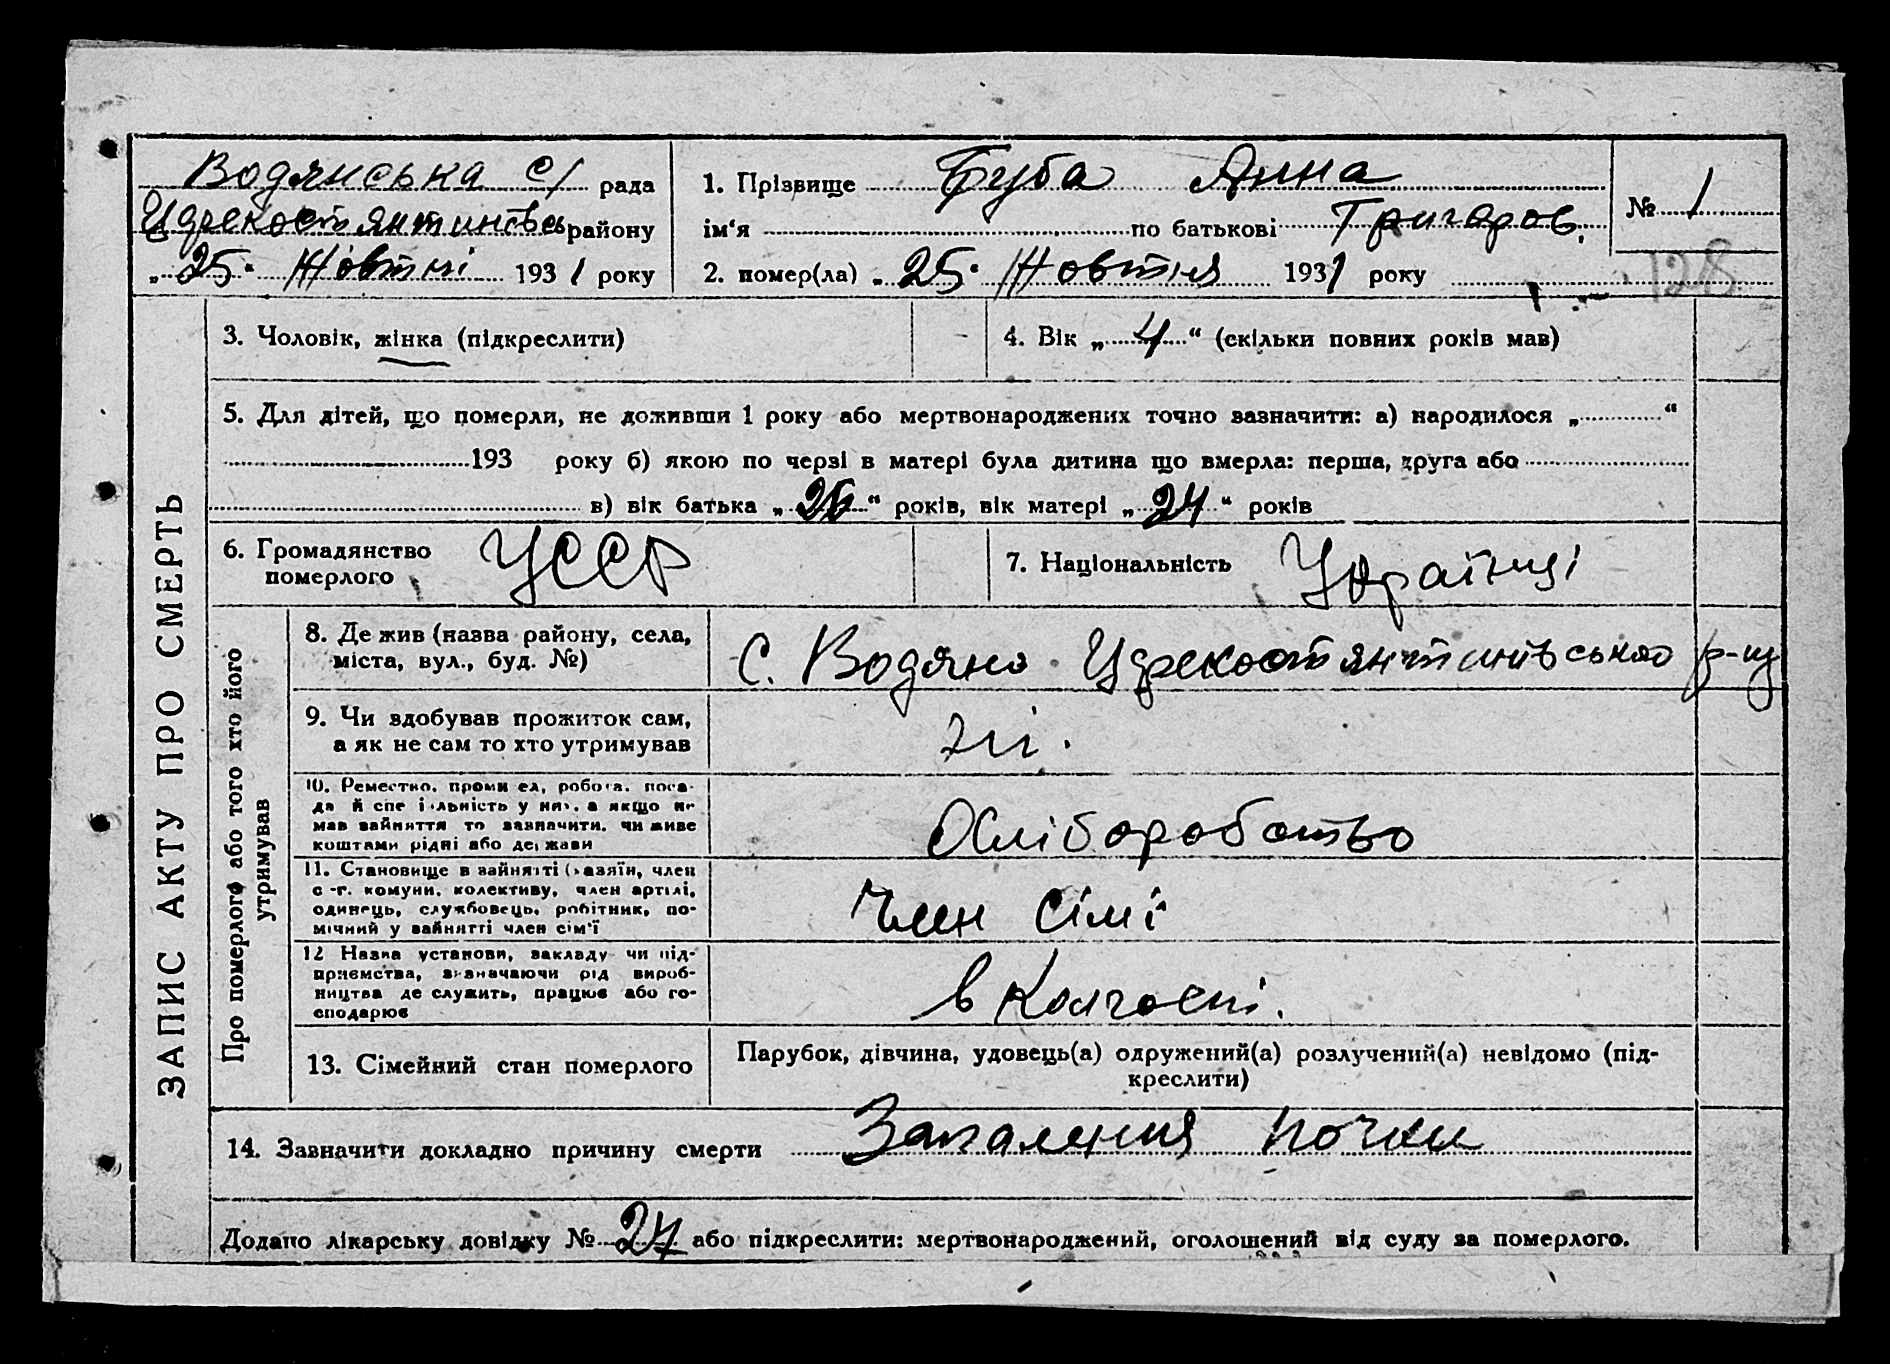 Водянська с/ рада
району
„25“ Жовтні 1931 року
1. Прізвище Буба Анна
ім‘я по батькові Григоров.
2. помер(ла) „25“ Жовтня 1931 року
№ 1
128
ЗАПИС АКТУ ПРО СМЕРТЬ
3. Чоловік, жінка (підкреслити)
4. Вік „4“ (скільки повних років мав)
5. Для дітей, що померли, не доживши 1 року або мертвонароджених точно зазначити: а) народилося „ “
193 року б) якою по черзі в матері була дитина що вмерла: перша, друга або
в) вік батька „26“ років, вік матері „24“ років
6. Громадянство
померлого УССР
7. Національність Українці
Про померлого або того хто його
утримував
8. Де жив (назва району, села,
міста, вул., буд. №)
С. Водяно р-ну
9. Чи здобував прожиток сам,
а як не сам то хто утримував
ні.
10. Ремество, промисел, робота, поса-
да й спеціальність у них, а якщо не
мав зайняття то зазначити, чи живе
коштами рідні або держави
Хліборобство
11. Становище в зайнятті (хазяїн, член
с.-г. комуни, колективу, член артілі,
одинець, службовець, робітник, по-
мічний у зайнятті член сім‘ї
Член сімї
12 Назва установи, закладу чи під-
приємства, зазначаючи рід вироб-
ництва де служить, працює або го-
сподарює
в Колгоспі.
13. Сімейний стан померлого
Парубок, дівчина, удовець(а) одружений(а) розлучений(а) невідомо (під-
креслити)
14. Зазначити докладно причину смерти Запалення почки
Додано лікарську довідку № 27 або підкреслити: мертвонароджений, оголошений від суду за померлого.